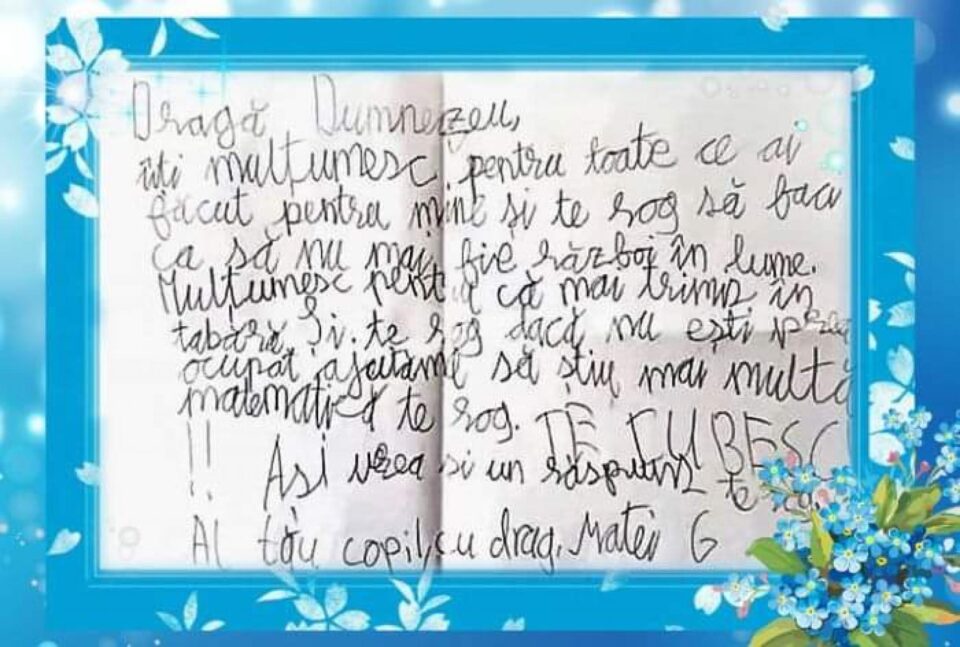 Dragă Dumnezeu,
îți mulțumesc pentru toate ce ai
făcut pentru mine și te rog să faci
ca să nu mai fie război în lume.
Mulțumesc pentru că mai trimis în
tabăra. Și te rog dacă nu ești prea
ocupat ajutamă să știu mai multă
matematică te rog. TE IUBESC
!! Asi vrea si un răspuns te rog
Al tău copil, cu drag, Matei G